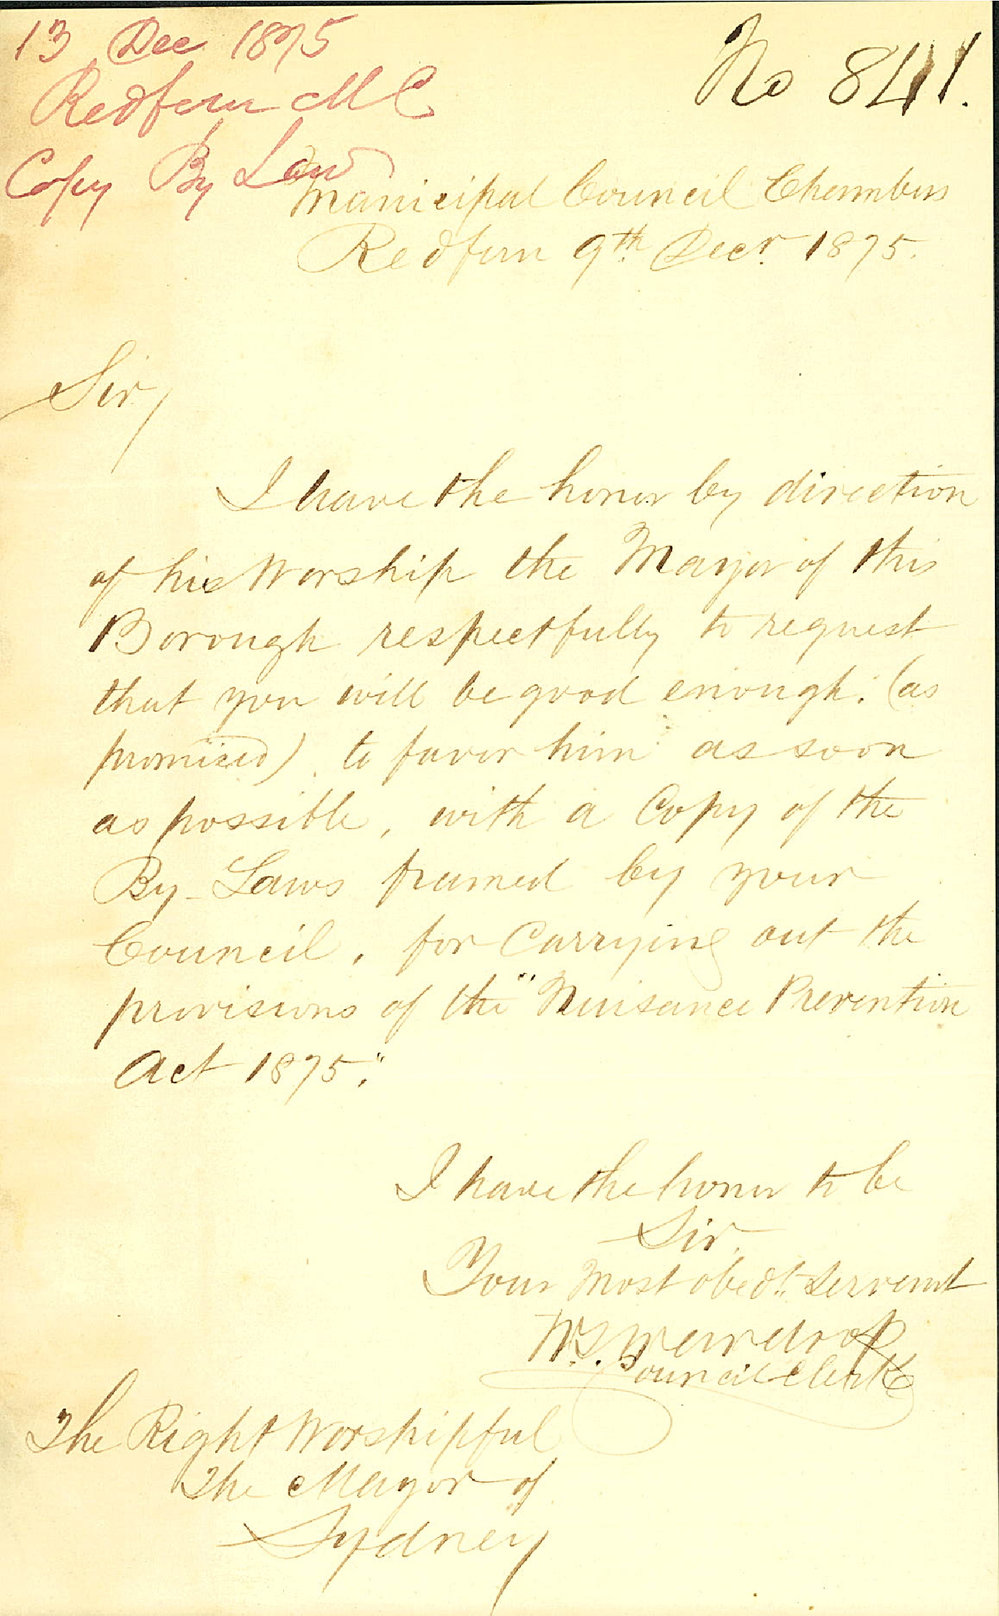 13 Dec 1875
Redfern M C
Copy By Law
No 841.
Municipal Council Chambers
Redfern 9th Decr 1875.
Sir,
I have the honor by direction
of his Worship the Mayor of this
Borough respectfully to request
that you will be good enough. (as
promised) to favor him as soon
as possible, with a Copy of the
By-Laws framed by your
Council, for Carrying out the
provisions of the "Nuisance Prevention
Act 1875."
I have the honor to be
Sir.
Your most obedt. Servant
Council Clerk
The Right Worshipful
The Mayor of
Sydney